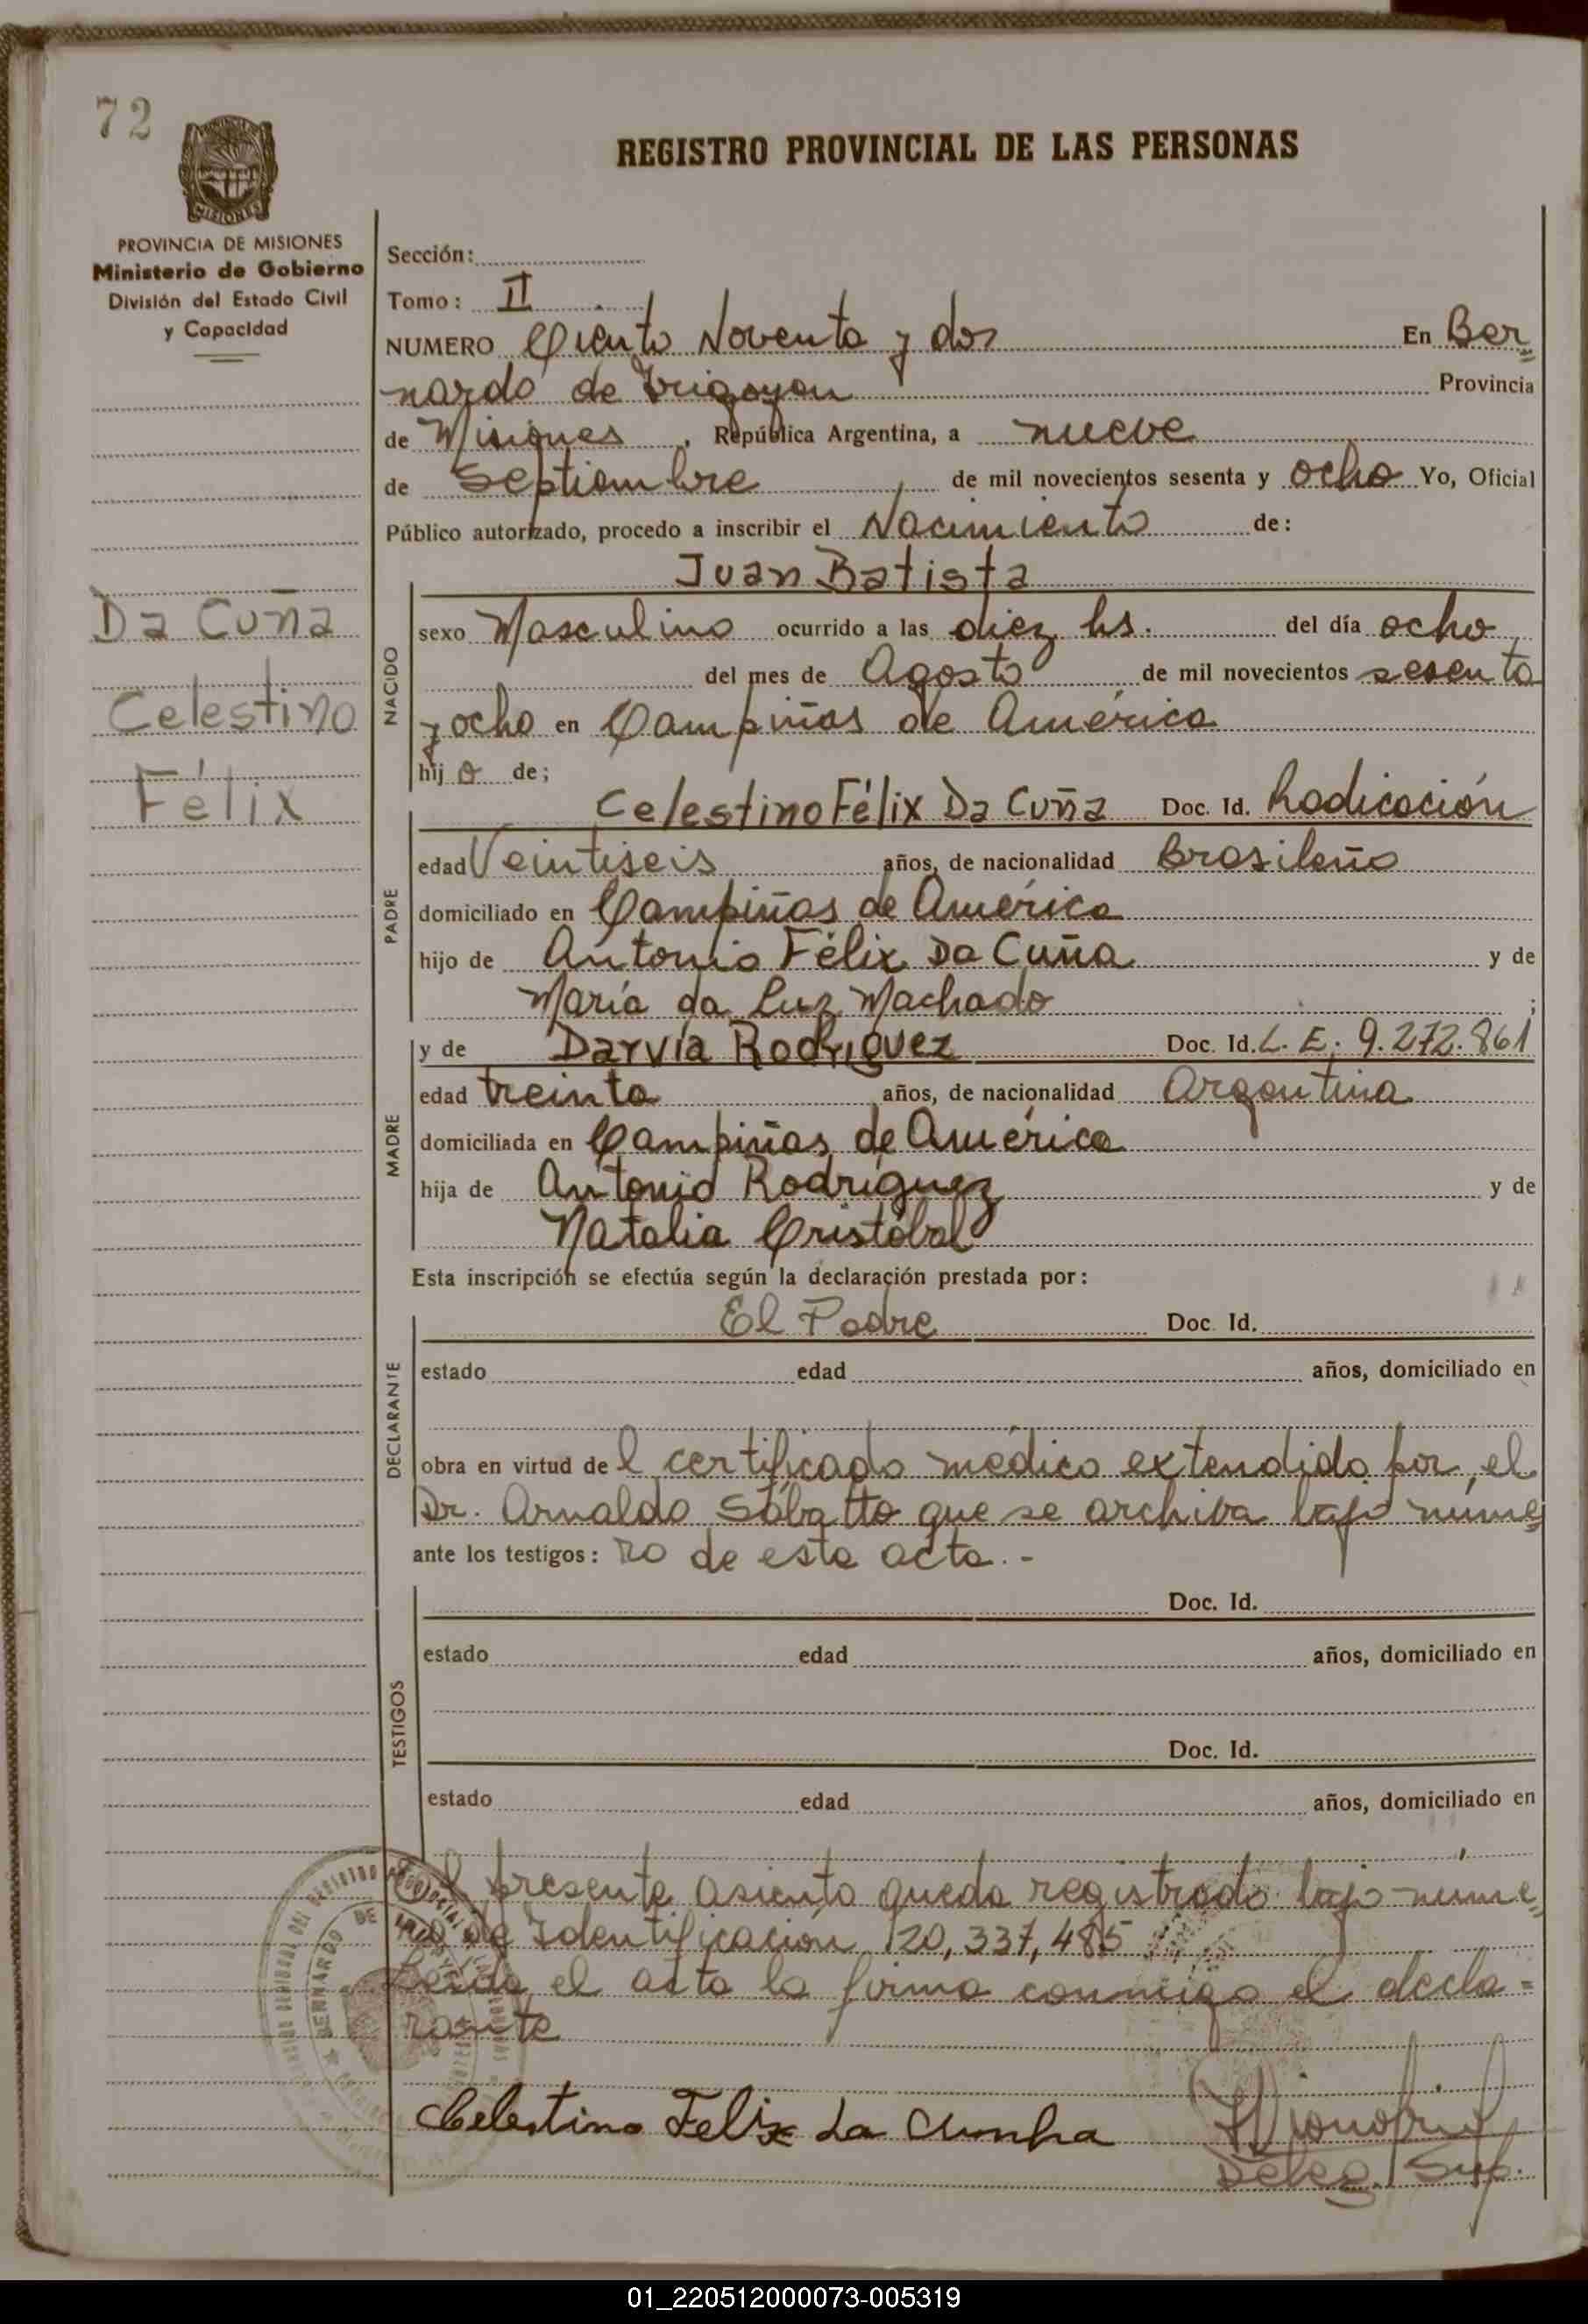 72
MISIONES
PROVINCIA DE MISIONES
Ministerio de Gobierno
División del Estado Civil
y Capacidad
Da Cuña
Celestino
Félix
REGISTRO PROVINCIAL DE LAS PERSONAS
Sección:
Tomo: II
NUMERO Ciento Noventa y dos En Ber=
nardo de Irigoyen Provincia
de Misiones, República Argentina, a nueve
de Septiembre de mil novecientos sesenta y ocho Yo, Oficial
Público autorizado, procedo a inscribir el Nacimiento de:
NACIDO
Juan Batista
sexo Masculino ocurrido a las diez hs. del día ocho
del mes de Agosto de mil novecientos sesenta
y ocho en Campiñas de América
hijo de;
PADRE
Celestino Félix Da Cuña Doc. Id. Radicación
edad Veintiseis años, de nacionalidad Brasileño
domiciliado en Campiñas de América
hijo de Antonio Félix Da Cuña y de
María da Luz Machado;
MADRE
y de Darvía Rodríguez Doc. Id. L. E. 9.272.861
edad treinta años, de nacionalidad Argentina
domiciliada en Campiñas de América
hija de Antonio Rodríguez y de
Natalia Cristóbal
Esta inscripción se efectúa según la declaración prestada por:
DECLARANTE
El Padre Doc. Id.
estado edad años, domiciliado en
obra en virtud del certificado médico extendido por el
Dr. Arnaldo Sábatto que se archiva bajo núme
ante los testigos: ro de esta acta.-
TESTIGOS
Doc. Id.
estado edad años, domiciliado en
Doc. Id.
estado edad años, domiciliado en
El presente asiento queda registrado bajo núme=
ro de Identificación 20,337,485
Leída el acta la firma conmigo el decla=
rante
Celestino Felix da Cunha
Deleg. Sup.
01_220512000073-005319